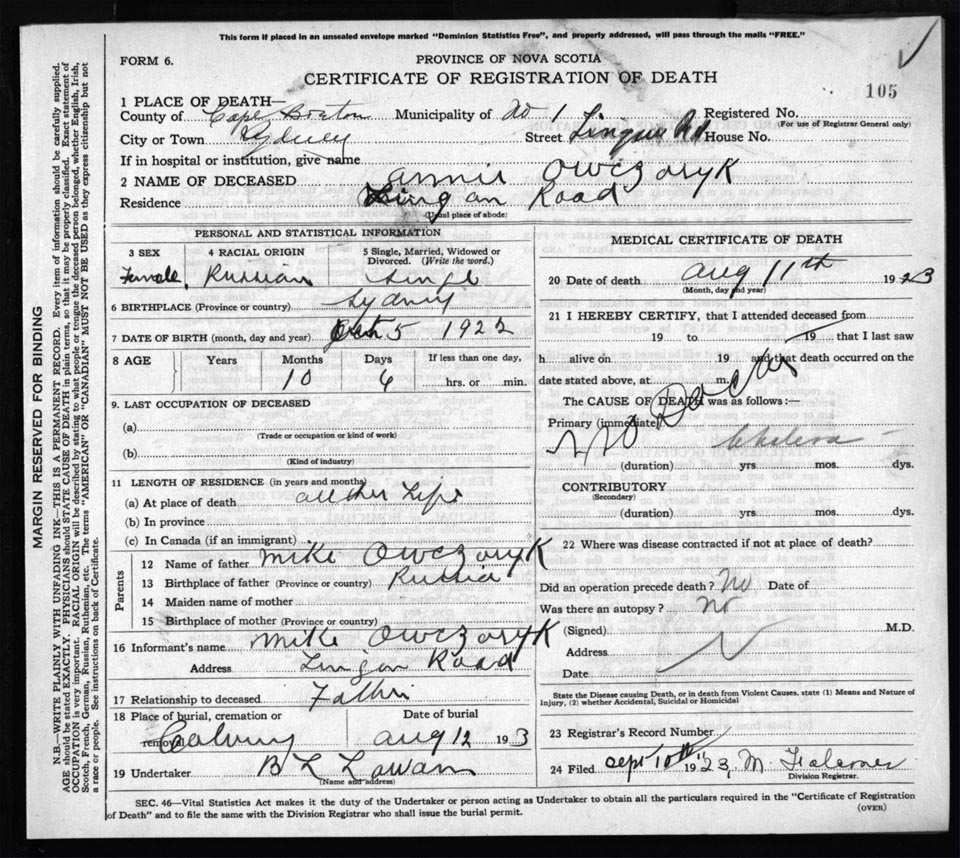 This form if placed in an unsealed envelope marked "Dominion Statistics Free", and properly addressed, will pass through the mails "FREE."
FORM 6.
PROVINCE OF NOVA SCOTIA
CERTIFICATE OF REGISTRATION OF DEATH
105
1 PLACE OF DEATH—
County of Cape Breton Municipality of No 1 Registered No.
(For use of Registrar General only)
City or Town Sydney Street Lingan Rd House No.
If in hospital or institution, give name
2 NAME OF DECEASED Annie Owczaryk
Residence Lingan Road
(Usual place of abode)
PERSONAL AND STATISTICAL INFORMATION
3 SEX 4 RACIAL ORIGIN 5 Single, Married, Widowed or Divorced. (Write the word.)
Female, Russian Single
6 BIRTHPLACE (Province or country) Sydney
7 DATE OF BIRTH (month, day and year) Oct 5 1922
8 AGE Years Months Days If less than one day,
10 6 hrs. or min.
9. LAST OCCUPATION OF DECEASED
(a)
(Trade or occupation or kind of work)
(b)
(Kind of industry)
11 LENGTH OF RESIDENCE (in years and months)
(a) At place of death all her Life
(b) In province
(c) In Canada (if an immigrant)
Parents
12 Name of father Mike Owczaryk
13 Birthplace of father (Province or country) Russia
14 Maiden name of mother
15 Birthplace of mother (Province or country)
16 Informant's name Mike Owczaryk
Address Lingan Road
17 Relationship to deceased Father
18 Place of burial, cremation or removal Date of burial
Calvary Aug 12 1923
19 Undertaker B L
(Name and address)
MEDICAL CERTIFICATE OF DEATH
20 Date of death Aug 11th 1923
(Month, day and year)
21 I HEREBY CERTIFY, that I attended deceased from
19 to 19 that I last saw
h alive on 19 and that death occurred on the
date stated above, at m.
The CAUSE OF DEATH was as follows:—
Primary (immediate)
No Doctor
Cholera
(duration) yrs. mos. dys.
CONTRIBUTORY
(Secondary)
(duration) yrs. mos. dys.
22 Where was disease contracted if not at place of death?
Did an operation precede death? No Date of
Was there an autopsy? No
(Signed) M.D.
Address
Date
State the Disease causing Death, or in death from Violent Causes, state (1) Means and Nature of Injury, (2) whether Accidental, Suicidal or Homicidal
23 Registrar's Record Number
24 Filed Sept 10th 1923, M
Division Registrar.
SEC. 46—Vital Statistics Act makes it the duty of the Undertaker or person acting as Undertaker to obtain all the particulars required in the "Certificate of Registration
of Death" and to file the same with the Division Registrar who shall issue the burial permit.
(OVER)
MARGIN RESERVED FOR BINDING
N.B.—WRITE PLAINLY WITH UNFADING INK—THIS IS A PERMANENT RECORD. Every item of information should be carefully supplied.
AGE should be stated EXACTLY. PHYSICIANS should STATE CAUSE OF DEATH in plain terms, so that it may be properly classified. Exact statement of
OCCUPATION is very important. RACIAL ORIGIN will be described by stating to what people or tongue the deceased person belonged, whether English, Irish,
Scotch, French, German, Russian, Ruthenian, etc. The terms "AMERICAN" OR "CANADIAN" MUST NOT BE USED as they express citizenship but not
a race or people. See instructions on back of Certificate.